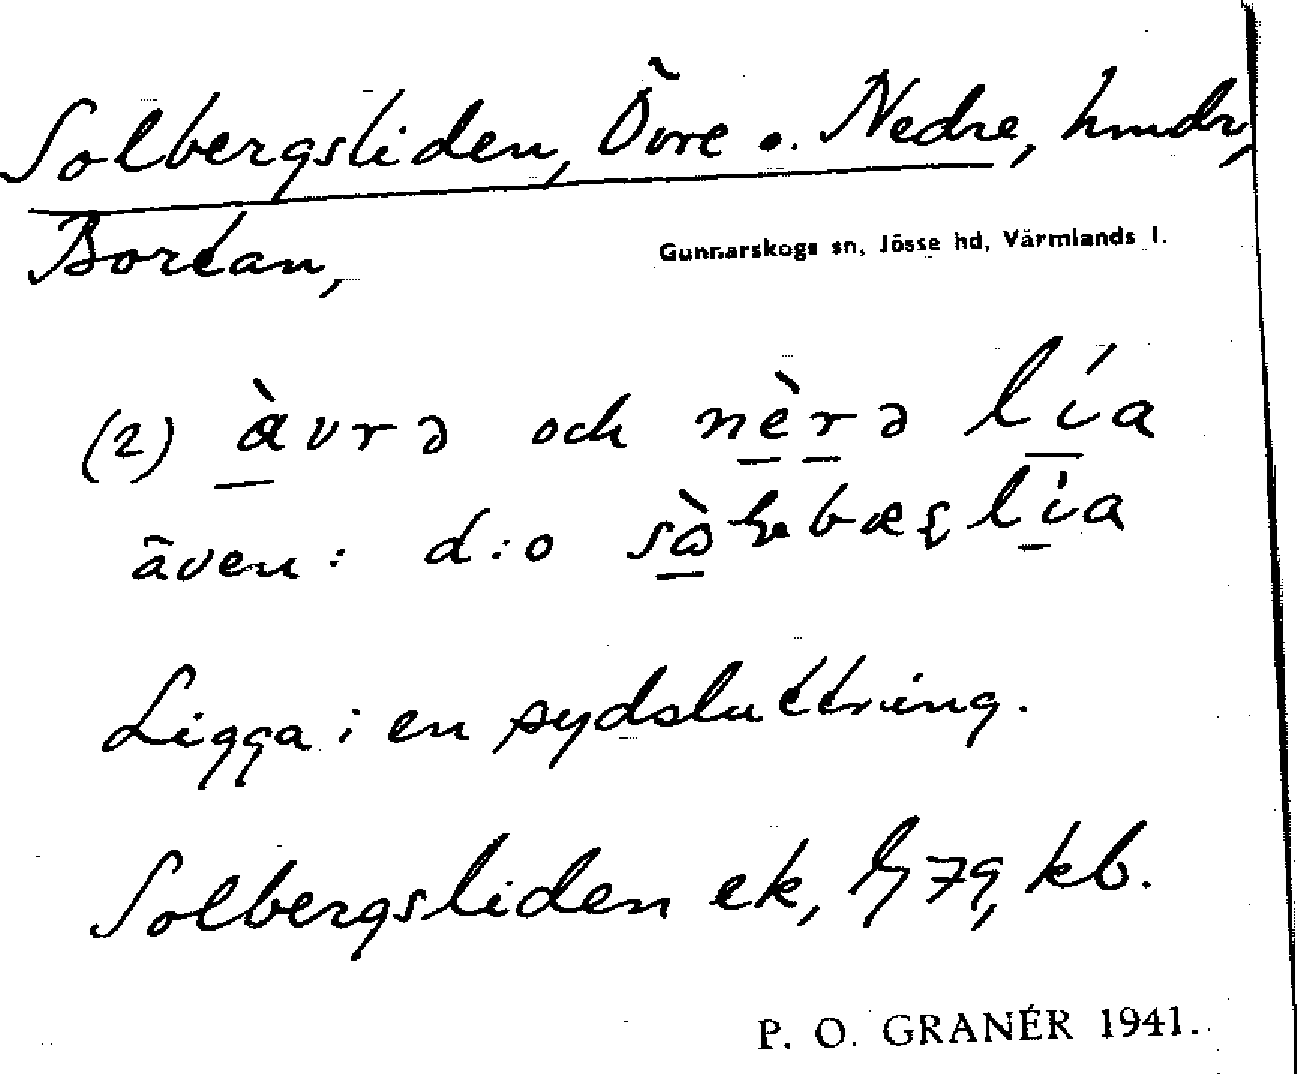 Solbergsliden, Övre o. Nedre, hmdr,
Bortan,
Gunnarskogs sn, Jösse hd, Värmlands l.
(2) àvrə och nèrə lía
även: d:o
Ligga i en sydsluttning.
Solbergsliden ek, 79, kb.
P. O. GRANÉR 1941.